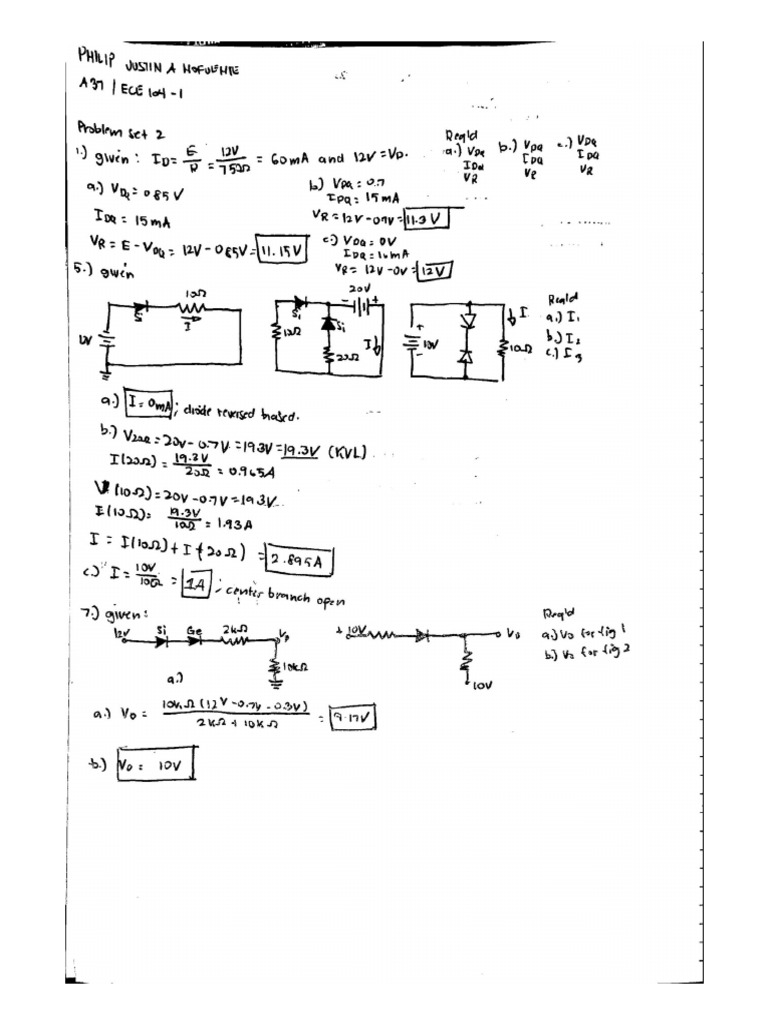 PHILIP JUSTIN A
A37 / ECE 104 - 1
Problem set 2
Req'd
a.) VDQ b.) VDQ c.) VDQ
IDQ IDQ IDQ
VR VR VR
1.) given: ID = E/R = 12V/75Ω = 60mA and 12V = VD.
a.) VDQ = 0.85V
IDQ = 15mA
VR = E - VDQ = 12V - 0.85V = 11.15V
b.) VDQ = 0.7
IDQ = 15mA
VR = 12V - 0.7V = 11.3V
c.) VDQ = 0V
IDQ = 16mA
VR = 12V - 0V = 12V
5.) given
10Ω
Si
I
20V
- +
Si
10Ω
Si
20Ω
I
+
10V
-
I
10Ω
Req'd
a.) I1
b.) I2
c.) I3
a.) I = 0mA ; diode reversed biased.
b.) V20Ω = 20V - 0.7V = 19.3V = 19.3V (KVL)
I(20Ω) = 19.3V/20Ω = 0.965A
V(10Ω) = 20V - 0.7V = 19.3V
I(10Ω) = 19.3V/10Ω = 1.93A
I = I(10Ω) + I(20Ω) = 2.895A
c.) I = 10V/10Ω = 1A ; center branch open
7.) given:
12V Si Ge 2kΩ Vo
10kΩ
a.)
+ 10V Vo
10V
Req'd
a.) Vo for fig 1
b.) Vo for fig 2
a.) Vo = 10kΩ (12V - 0.7V - 0.3V) / 2kΩ + 10kΩ = 9.17V
b.) Vo = 10V